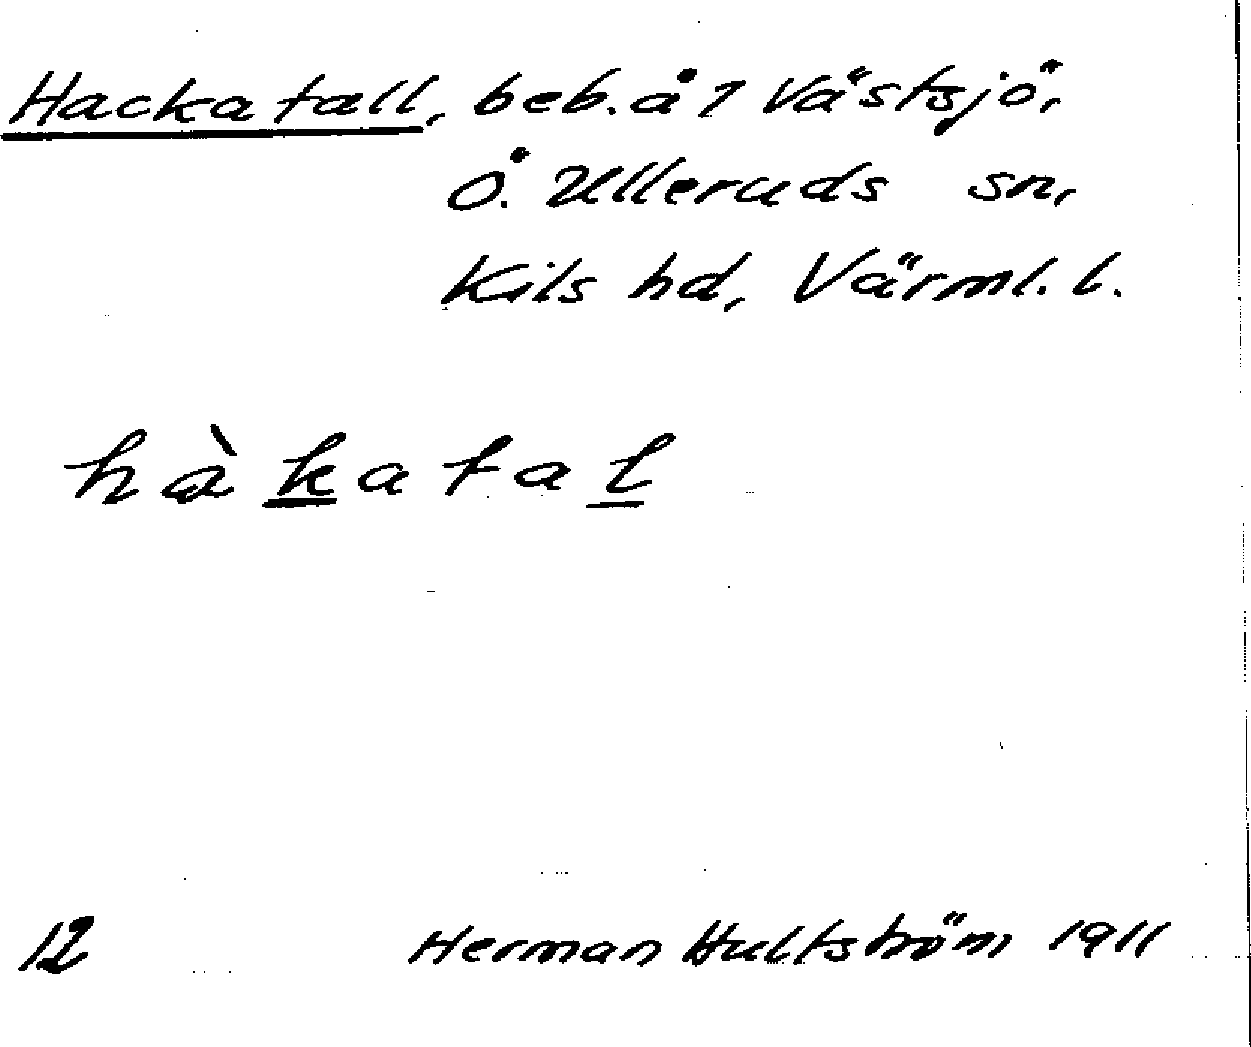 Hackatall, beb. å 1 Västsjö,
Ö. Ulleruds sn,
Kils hd, Värml. l.
hàkatal
12 Herman Hultström 1911